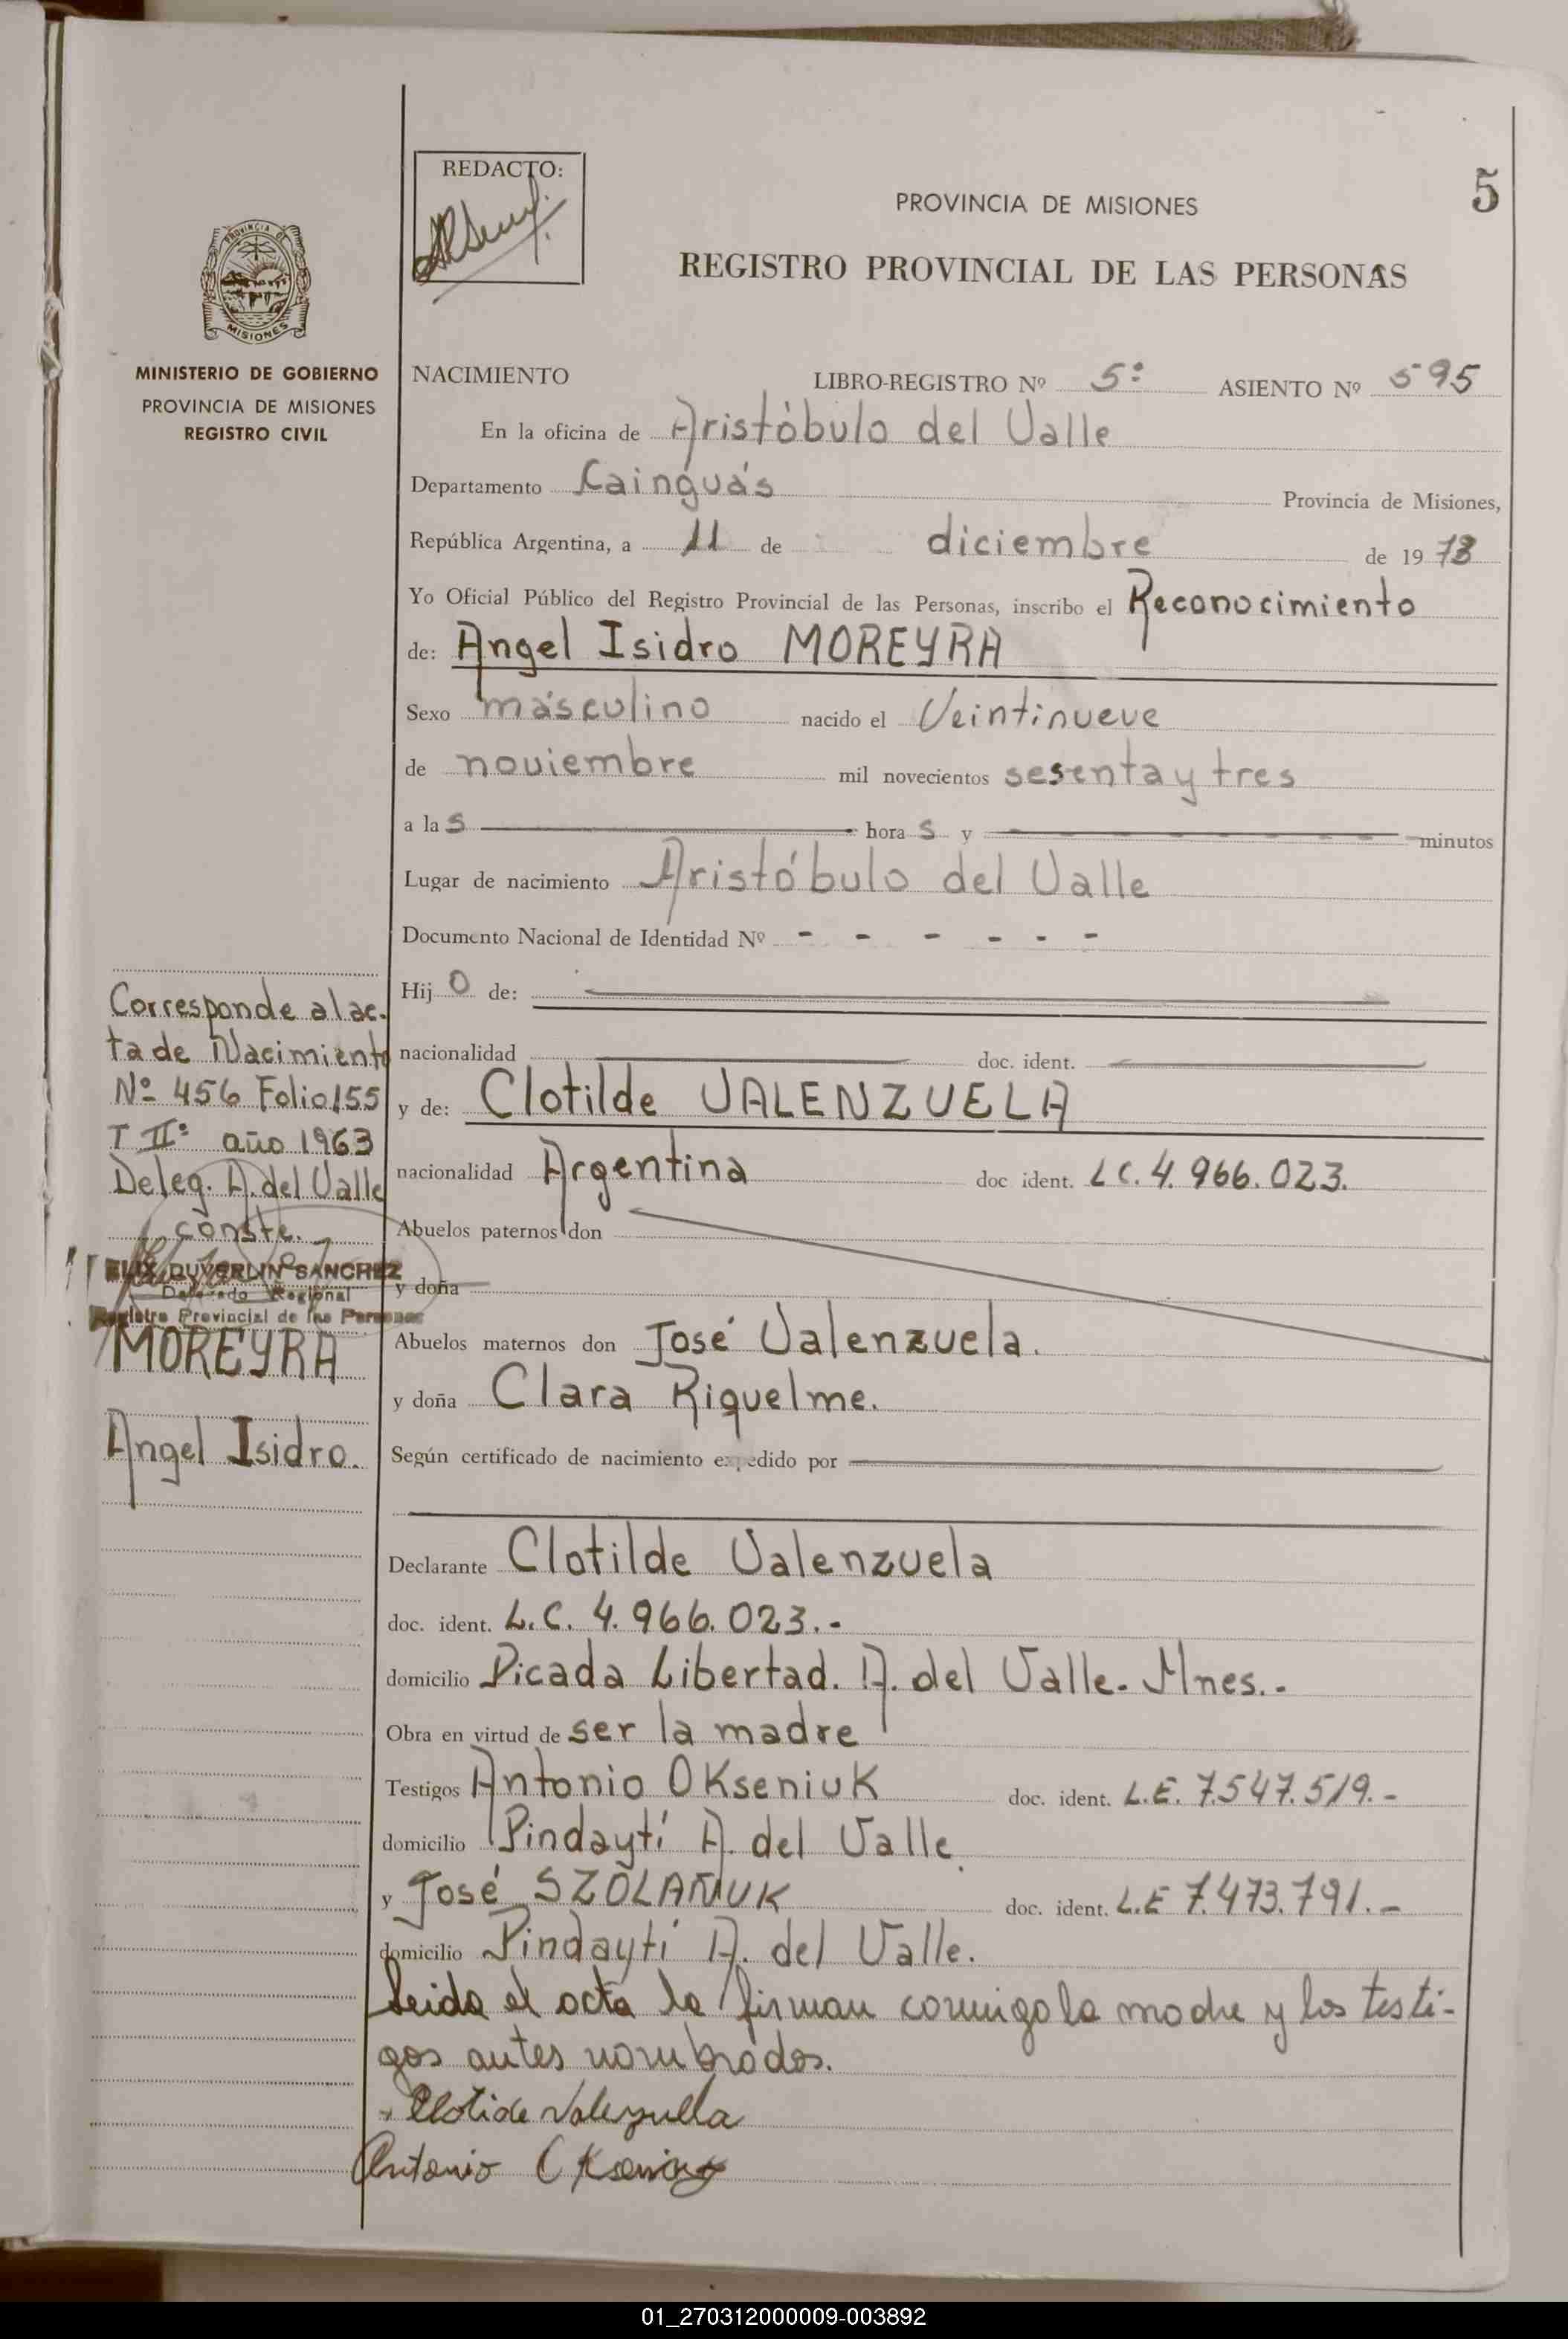 5
REDACTO:
PROVINCIA DE MISIONES
REGISTRO PROVINCIAL DE LAS PERSONAS
PROVINCIA DE
MISIONES
MINISTERIO DE GOBIERNO
PROVINCIA DE MISIONES
REGISTRO CIVIL
NACIMIENTO LIBRO-REGISTRO Nº 5º ASIENTO Nº 595
En la oficina de Aristóbulo del Valle
Departamento Cainguás Provincia de Misiones,
República Argentina, a 11 de diciembre de 1978
Yo Oficial Público del Registro Provincial de las Personas, inscribo el Reconocimiento
de: Angel Isidro MOREYRA
Sexo másculino nacido el Veintinueve
de noviembre mil novecientos sesenta y tres
a la s hora s y minutos
Lugar de nacimiento Aristóbulo del Valle
Documento Nacional de Identidad Nº - - - - - -
Hij o de:
nacionalidad doc. ident.
y de: Clotilde VALENZUELA
nacionalidad Argentina doc ident. L C. 4. 966. 023.
Abuelos paternos don
y doña
Abuelos maternos don José Valenzuela.
y doña Clara Riquelme.
Según certificado de nacimiento expedido por
Declarante Clotilde Valenzuela
doc. ident. L. C. 4. 966. 023. -
domicilio Picada Libertad. A. del Valle. Mnes. -
Obra en virtud de ser la madre
Testigos Antonio OKseniuK doc. ident. L.E. 7.547.519. -
domicilio Pindaytí A. del Valle.
y José SZOLAÑUK doc. ident. L.E 7.473.791. -
domicilio Pindaytí A. del Valle.
Leida el acta la firman conmigo la madre y los testi-
gos antes nombrados.
Clotide Valenzuella
Antonio
Corresponde al ac-
ta de Nacimiento
Nº 456 Folio 155
T IIº año 1963
Deleg. A. del Valle
conste.
FELIX DUVERLIN SANCHEZ
Delegado Regional
Registro Provincial de las Personas
MOREYRA
Angel Isidro.
01_270312000009-003892